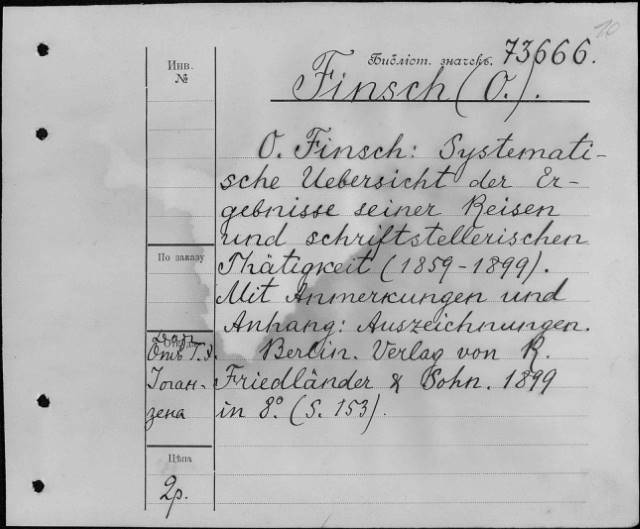 10
Библіот. значекъ. 73666.
Finsch (O.).
Инв.
№
O. Finsch: Systemati-
sche Uebersicht der Er-
gebnisse seiner Reisen
und schriftstellerischen
Thätigkeit (1859-1899).
Mit Anmerkungen und
Anhang: Auszeichnungen.
Berlin. Verlag von R.
Friedländer & Sohn. 1899
in 8° (S. 153).
По заказу
Отъ Г. Э.
Іоган-
зена
Цѣна
2р.